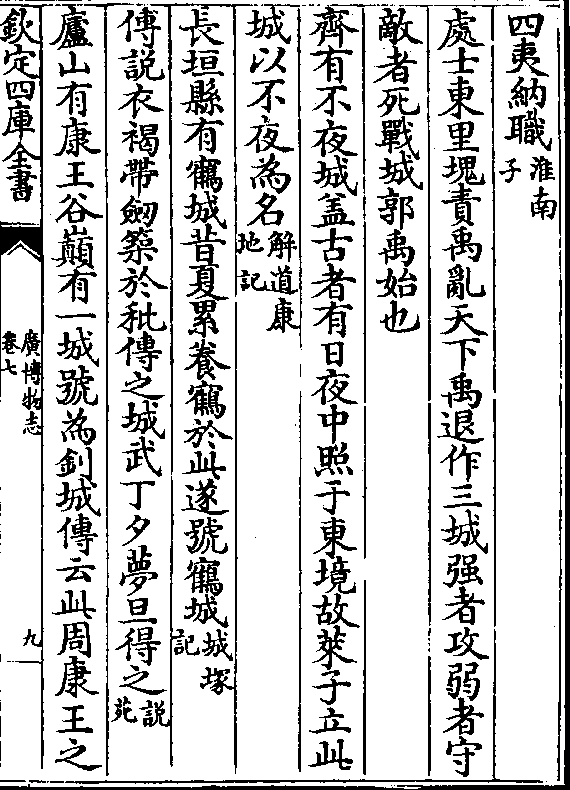 四夷納職淮南子
處士東里塊責禹亂天下禹退作三城强者攻弱者守
敵者死戰城郭禹始也
齊有不夜城盖古者有日夜中照于東境故萊子立此
城以不夜為名解道康地記
長垣縣有鶴城昔夏累養鶴於此遂號鶴城城塚記
傅説衣褐帶劒築於秕傅之城武丁夕夢旦得之説苑
廬山有康王谷巔有一城號為釗城傳云此周康王之
欽定四庫全書
廣博物志
卷七
九